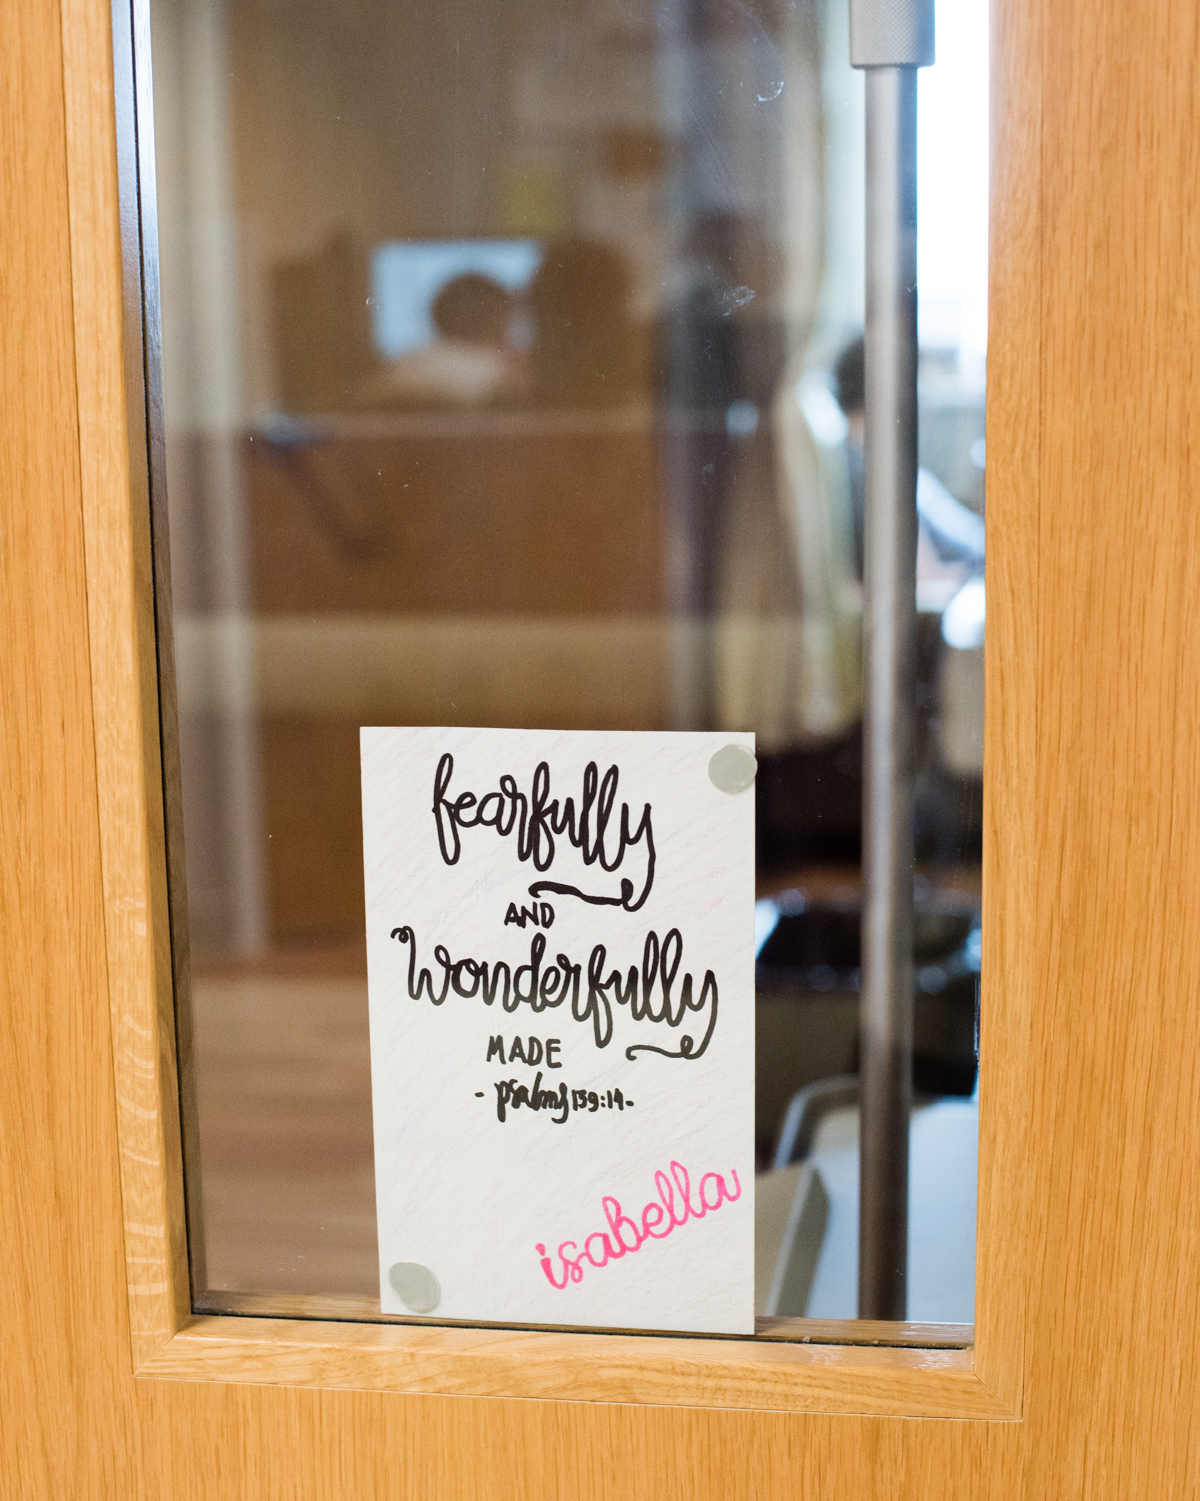 fearfully
AND
Wonderfully
MADE
- psalms 139:14 -
isabella